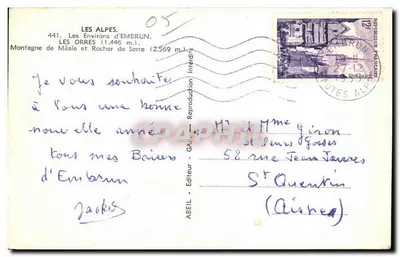 05
LES ALPES.
441. Les Environs d'EMBRUN.
LES ORRES (1.446 m.)
Montagne de Méale et Rocher de Serre (2.569 m.)
EMBRUN
HAUTES ALPES
Je vous souhaite
à vous une bonne
nouvelle année
tous mes Baisers
d'Embrun
ABEIL - Editeur - GAP
Reproduction Interdite
Mr et Mme Giron
et leurs Gosses
52 rue Jean Jaurès
St Quentin
(Aisne)